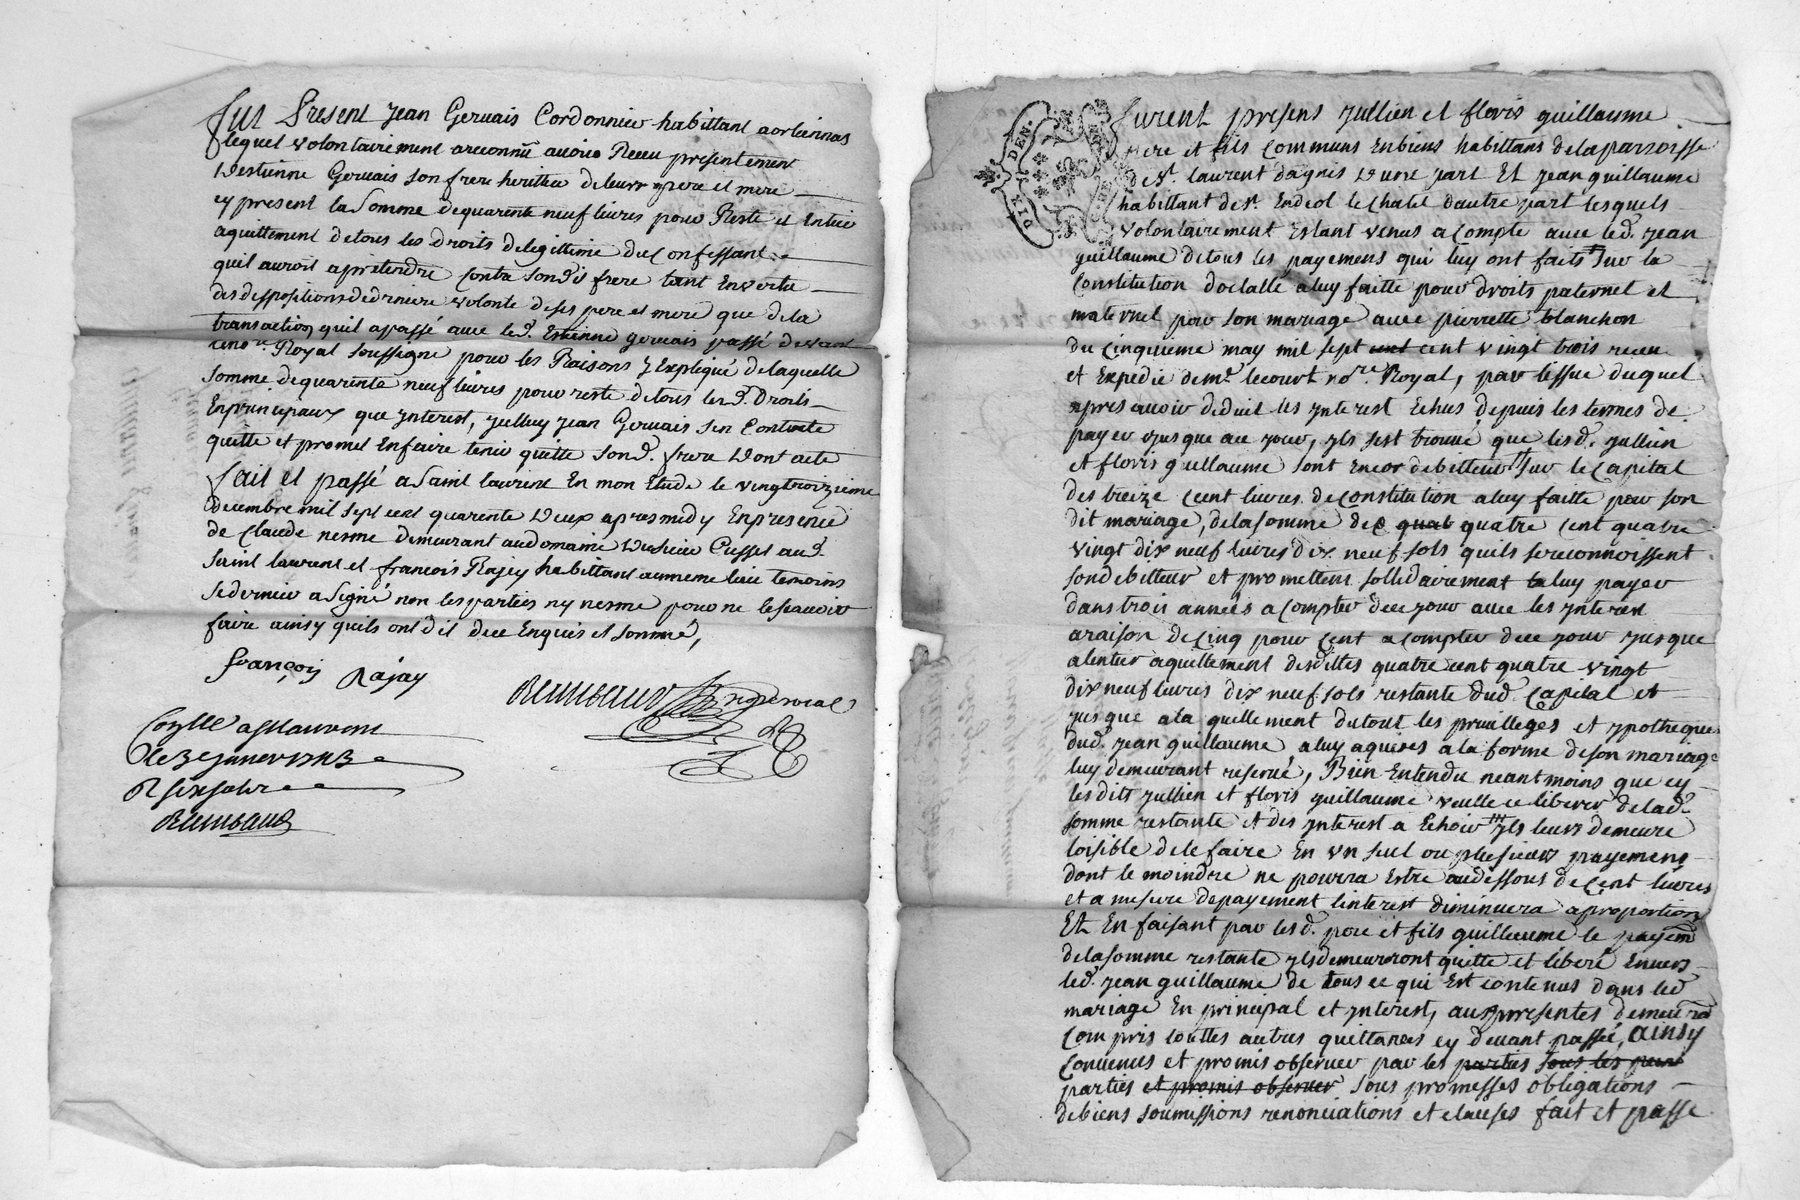 Fut Present Jean Gervais Cordonnier habittant aorliennas
lequel volontairement areconnü avoir Receu presentement
Destienne Gervais son frere heritier deleurs pere et mere
cy present la somme dequarente neuf livres pour Reste et Entier
aquittement detous les droits delegittime du Confessant
quil auroit apretendre Contre sondit frere tant En vertu
des dispositions dederniere volonte deses pere et mere que dela
transaction quil apassé avec led. Estienne gervais passé devant
le no.re Royal soussigne pour les Raisons y Expliqué delaquelle
somme dequarente neuf livres pour reste detous lesd. Droits
Enprincipaux que ynterest, yceluy Jean Gervais sen Contente
quitte et promet Enfaire tenir quitte sond. frere Dont acte
fait et passé a Saint laurent En mon Etude le vingttroizieme
decembre mil sept cent quarente Deux apres midy Enpresence
de Claude nesme demeurant audomaine Dusieur Cusset aud.
saint laurent et françois Rajey habittant aumeme lieu temoins
sedernier asigné non les parties ny nesme pour ne lescavoir
faire ainsy quils ont dit dece Enquis et sommé,
françois Rajay
Reimbaud no.re royal
Conllé a
le 3e janvier 1743
R six sols
Reimbaud
DIX DEN.
Furent presens Jullien et floris guillaume
Pere et fils Communs Enbiens habittans delaparroisse
de S.t laurent dagnis Dune part Et Jean guillaume
habittant de S.t Endeol le Chatel dautre part lesquels
volontairement Estant venus acompte avec led. Jean
guillaume detous les payemens qui luy ont faits sur la
Constitution doctalle aluy faitte pour droits paternel et
maternel pour son mariage avec pierrette blanchon
du Cinquieme may mil sept cent cent vingt trois receu
et Expedié de m.e lecourt no.re Royal, par lissue duquel
apres avoir deduit les ynterest Echus depuis les termes de
payer jusque au jour, yls sest trouvé que lesd. Jullien
et floris guillaume sont Encor debitteur sur le Capital
des treize Cent livres de constitution aluy faitte pour son
dit mariage, delasomme de quat quatre cent quatre
vingt dix neuf livres dix neuf sols quils sereconnoissent
sondebitteur et promettent sollidairement luy payer
dans trois années a compter dece jour avec les ynterest
araison de Cinq pour Cent acompter dece jour jusque
alentier aquittement desdittes quatre cent quatre vingt
dix neuf livres dix neuf sols restante dud. Capital et
jusque ala quittement dutout les privilleges et ypotheque
dud. Jean guillaume aluy aquises ala forme deson mariage
luy demeurant reservé, Bien Entendu neantmoins que cy
lesdits Jullien et floris guillaume veulle ce liberer delad.
somme restante et des ynterest a Echoir yls leurs demeure
loisible dele faire En un seul ou plusieurs payemens
dont le moindre ne pourra Estre audessous de Cent livres
et a mesure depayement linterest diminuera aproportion
Et En faisant par lesd. pere et fils guillaume le payem.t
delasomme restante yls demeurront quitte et liberé Envers
led. Jean guillaume de tous ce qui Est contenus dans led.
mariage En principal et ynterest, aux presentes demeurent
Compris touttes autres quittances cy devant passé, ainsy
Convenus et promis observer par les parties sous les
parties et promis observer sous promesses obligations
debiens soumissions renonciations et clauses fait et passé